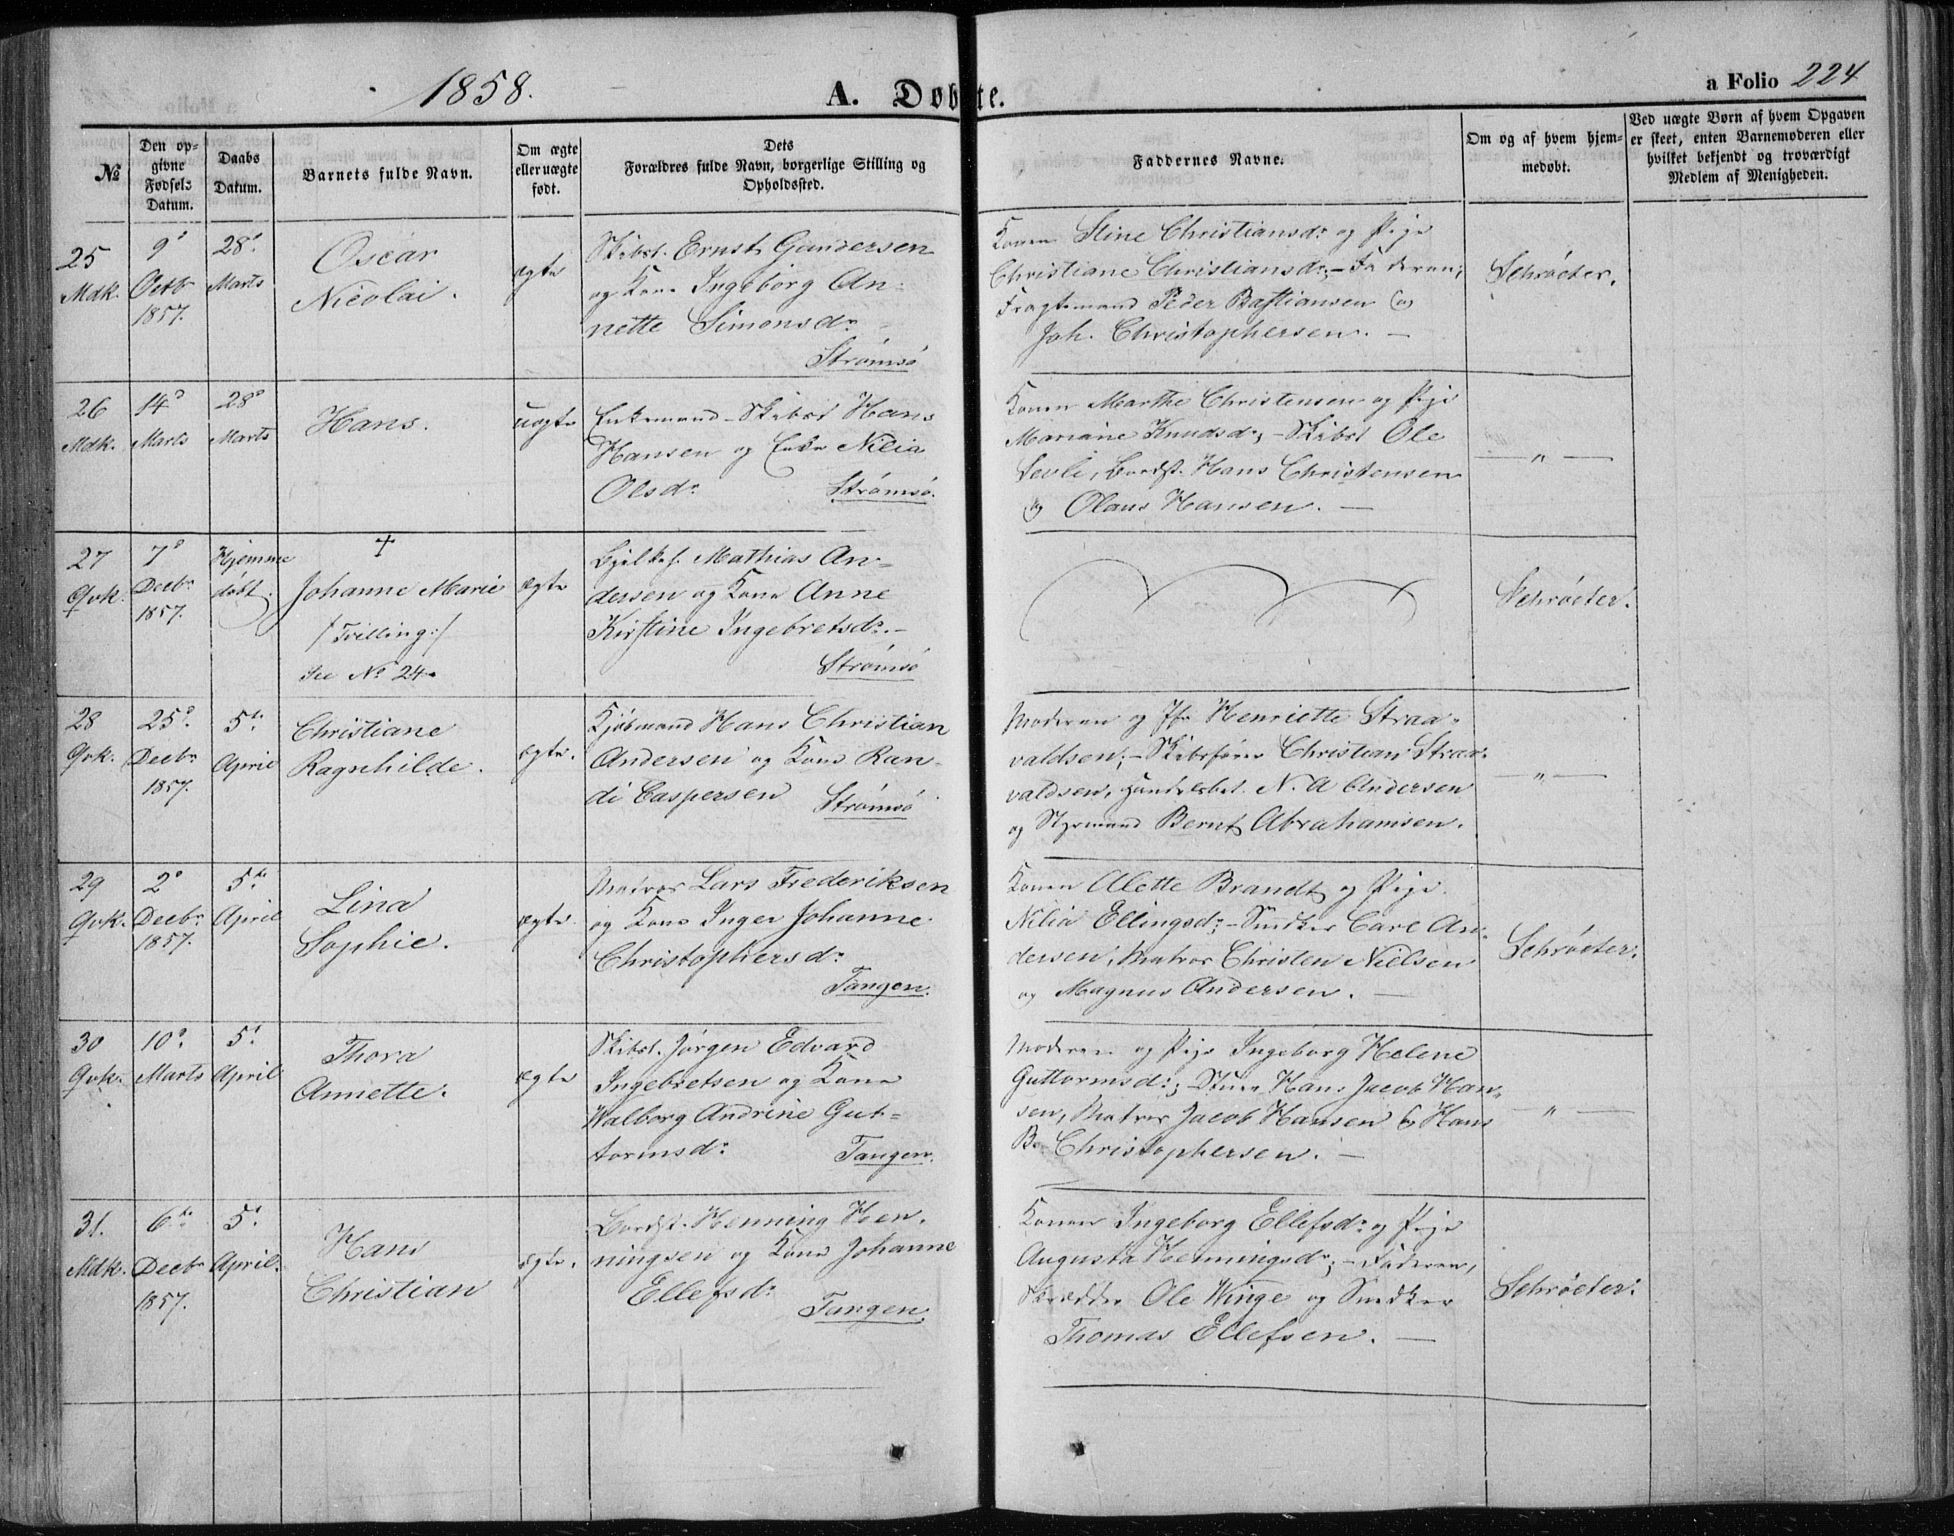 1858.
A. Døbte.
a Folio 224
№
Den opgivne Fødsels Datum.
Daabs Datum.
Barnets fulde Navn.
Om ægte eller uægte født.
Dets Forældres fulde Navn, borgerlige Stilling og Opholdssted.
Faddernes Navne.
Om og af hvem hjemmedøbt.
Ved uægte Børn af hvem Opgaven er skeet, enten Barnemoderen eller hvilket bekjendt og troværdigt Medlem af Menigheden.
25
Mdk.
9d
Octbr
1857.
28d
Marts
Oscar
Nicolai.
ægte
Skibst. Ernst Gundersen
og Kone Ingeborg An-
nette Simonsdr
Strømsø
Konen Stine Christiansdr og Pige
Christiane Christiansdr; - Faderen,
Fragtemand Peder Bastiansen og
Joh. Christophersen. -
Schrøeter.
26
Mdk.
14d
Marts
28d
Marts
Hans.
uægte
Enkemand Skibst Hans
Hansen og Enke Nilia
Olsdr
Strømsø.
Konen Marthe Christensen og Pige
Mariane Knudsdr; - Skibst Ole
Hans Christensen
og Olaus Hansen. -
— " —
27
Qvk.
7d
Decbr
1857.
Hjemme
døbt.
+
Johanne Marie
/:Trilling:/
see No 24.
ægte
Mathias An-
dersen og Kone Anne
Kirstine Ingebretsdr. -
Strømsø
Schrøeter.
28
Qvk.
25d
Decbr
1857.
5te
April
Christiane
Ragnhilde.
ægte.
Kjøbmand Hans Christian
Andersen og Kone Ran-
di Caspersen
Strømsø
Moderen og Jfr Henriette Straa-
valdsen; - Skibsfører Christian Straa-
valdsen, Handelsbet. N. A Andersen
og Styrmand Bernt Abrahamsen.
— " —
29
Qvk.
2d
Decbr
1857.
5te
April
Lina
Sophie.
ægte.
Matros Lars Frederiksen
og Kone Inger Johanne
Christophersdr
Tangen.
Konen Alette Brandt og Pige
Nilia Ellingsdr; - Snedker Carl An-
dersen, Matros Christen Nielsen
og Magnus Andersen. -
Schrøeter.
30
Qvk.
10d
Marts
5t
April
Thora
Annette.
ægte
Skibst. Jørgen Edvard
Ingebretsen og Kone
Walborg Andrine Gut-
tormsdr
Tangen.
Moderen og Pige Ingeborg Helene
Guttormsdr; - Hans Jacob Han-
sen, Matros Jacob Hansen & Hans
Christophersen. -
— " —
31.
Mdk.
6te
Decbr
1857.
5t
April.
Hans
Christian
ægte.
Bordst. Henning Hen-
ningsen og Kone Johanne
Ellefsdr
Tangen.
Konen Ingeborg Ellefsdr og Pige
Augusta Henningsdr; - Faderen,
Skrædder Ole Winge og Snedker
Thomas Ellefsen. -
Schrøeter.